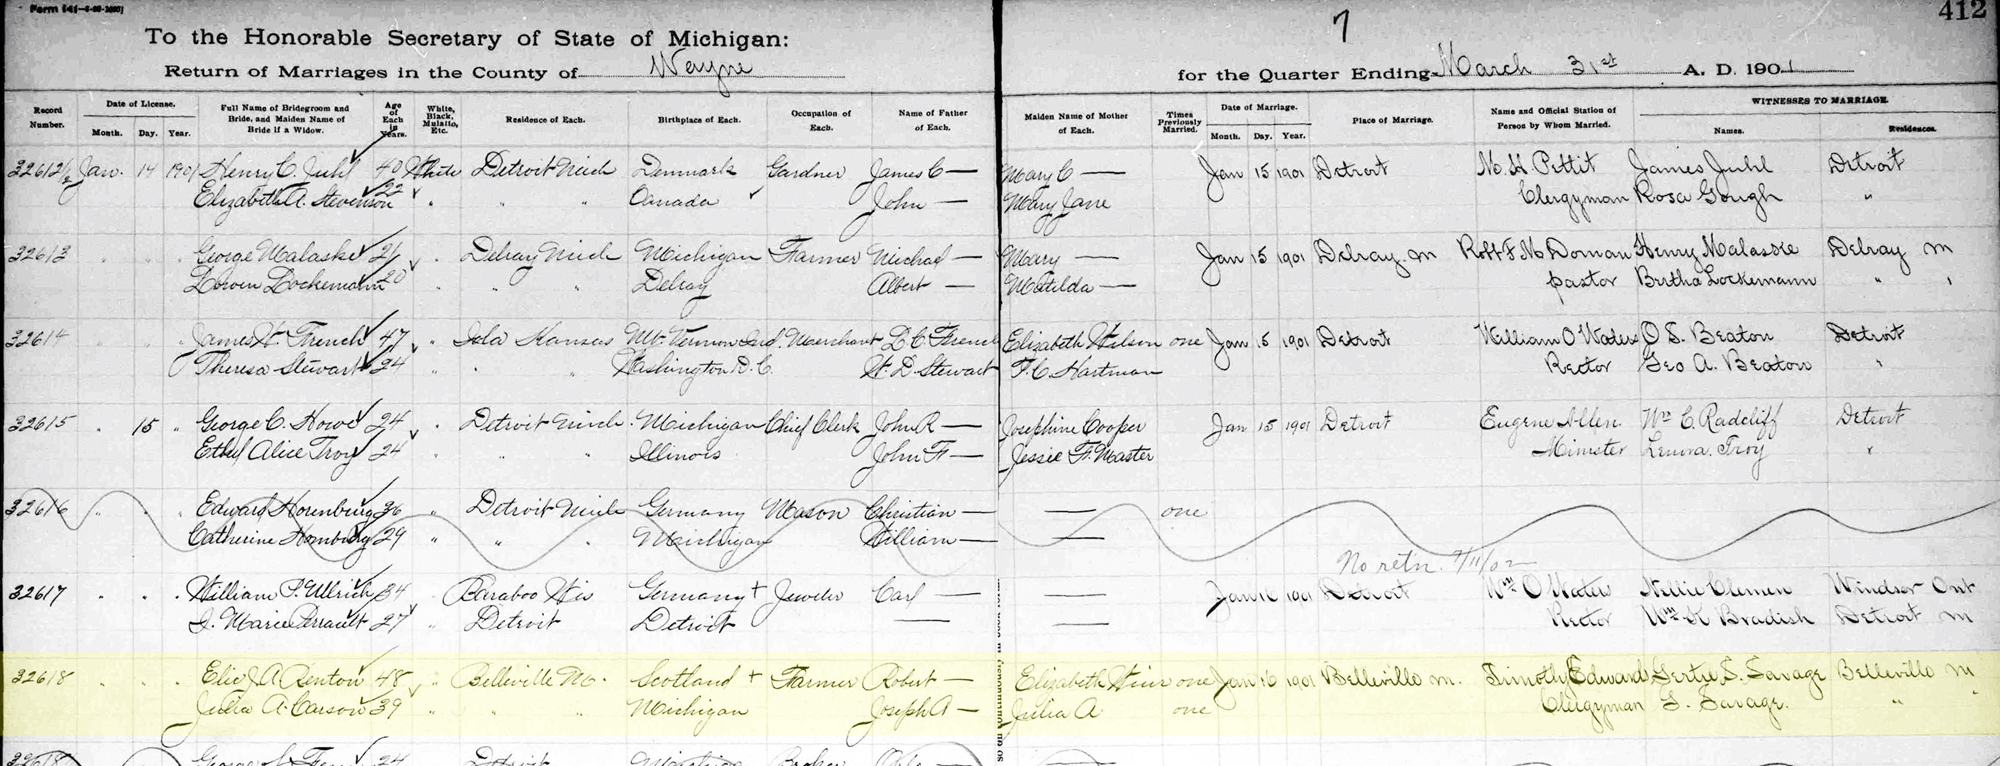 Form 141
412
7
To the Honorable Secretary of State of Michigan:
Return of Marriages in the County of Wayne for the Quarter Ending March 31st A. D. 1901
Record Number. Date of License. Month. Day. Year. Full Name of Bridegroom and Bride, and Maiden Name of Bride if a Widow. Age of Each in Years. White, Black, Mulatto, Etc. Residence of Each. Birthplace of Each. Occupation of Each. Name of Father of Each. Maiden Name of Mother of Each. Times Previously Married. Date of Marriage. Month. Day. Year. Place of Marriage. Name and Official Station of Person by Whom Married. WITNESSES TO MARRIAGE. Names. Residences.
32612½ Jan. 14 1901 Henry C. Juhl 40 White Detroit Mich Denmark Gardner James C — Mary C — Jan 15 1901 Detroit M. H. Pettit James Juhl Detroit
Elizabeth A. Stevenson 22 " " " Canada John — Mary Jane Clergyman Rosa Gough "
32613 " " " George Malaskie 21 " Delray Mich Michigan Farmer Michael — Mary — Jan 15 1901 Delray M Robt F. M Doman Henry Malaskie Delray M
Lockemann 20 " " " Delray Albert — Matilda — pastor Bertha Lockemann " "
32614 " " " James H. French 47 " Iola Kansas Mt. Vernon Ind. Merchant L C French Elizabeth Wilson one Jan 15 1901 Detroit William O Waters O S. Beaton Detroit
Theresa Stewart 24 " " " Washington D. C. W. D. Stewart F. C. Hartman Rector Geo A. Beaton "
32615 " 15 " George C. Howe 24 " Detroit Mich Michigan Chief Clerk John R — Josephine Cooper Jan 15 1901 Detroit Eugene Allen Wm C Radcliff Detroit
Ethel Alice Troy 24 " " " Illinois John F — Jessie F. Master Minister Lenora Troy "
32616 " " " Edward Hornburg 36 " Detroit Mich Germany Mason Christian — — one
Catherine Hornburg 29 " " " Michigan William — —
No retn. 9/11/02
32617 " " " William P. Ullrich 34 " Baraboo Wis Germany + Jeweler Carl — — Jan 16 1901 Detroit Wm O Waters Nellie Clemen Windsor Ont
J. Marie Perrault 27 " Detroit Detroit — — Rector Wm H Bradish Detroit M
32618 " " " A Renton 48 " Belleville M. Scotland + Farmer Robert — Elizabeth Weir one Jan 16 1901 Belleville M. Timothy Edwards Gertie S. Savage Belleville M
Julia A. Carson 39 " " " Michigan Joseph A — Julia A one Clergyman Savage "
24 Detroit